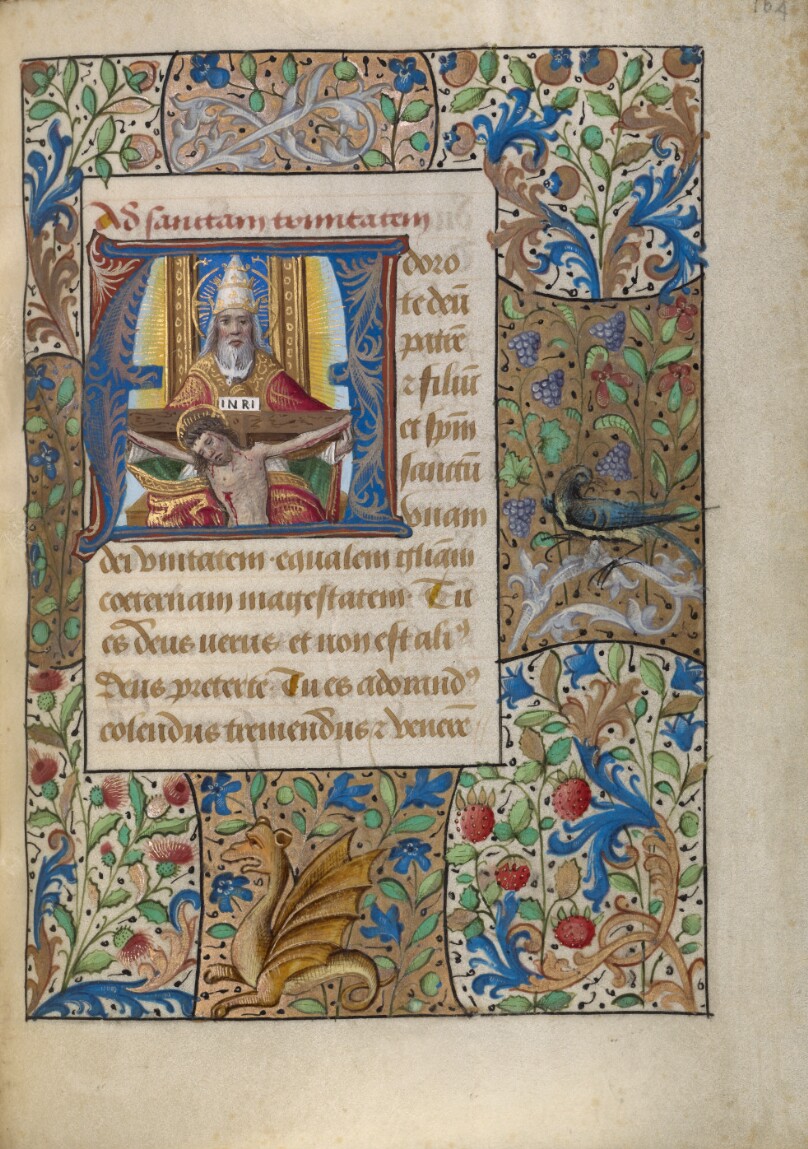 164
Ad sanctam trinitatem
INRI
Adoro
te deū
patrē
⁊ filiū
et spm̄
sanctū
vnam
dei vnitatem equalem gl̄iam
coeternam magestatem Tu
es deus uerus et non est aliꝰ
Deus preter te Tu es adorandꝰ
colendus tremendus ⁊ venerē